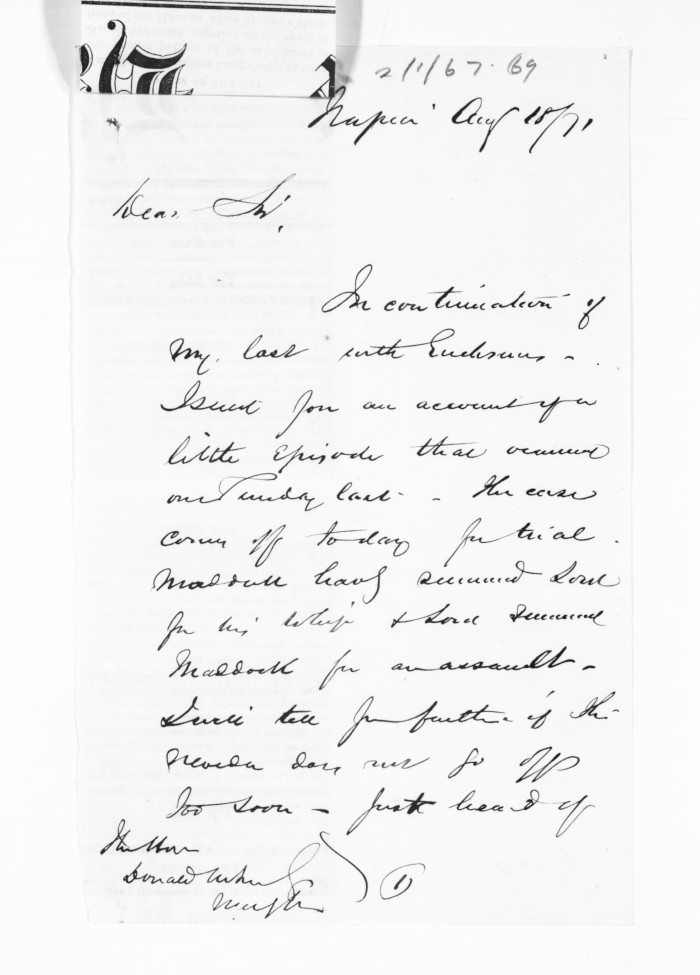 2/1/67. 69
Napier Aug 18/71
Dear Sir,
In continuation of
my last with Enclosures -
I send you an account of a
little Episode that occurred
on Tuesday last - The case
comes off today for trial.
Maddock havg summoned Lord
for his Whip & Lord summoned
Maddock for an assault -
I will tell you further if the
nevada does not go off
too soon - Just heard of
The Hon
Donald McLean
1